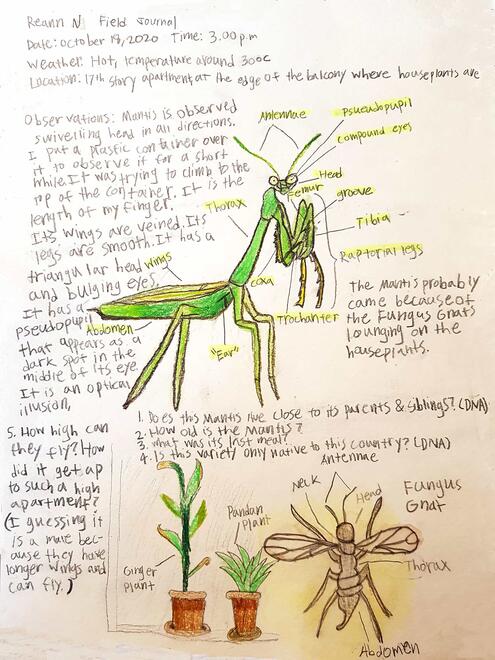 Reann N Field Journal
Date: october 18, 2020 Time: 3.00 p.m
Weather: Hot, temperature around 30oc
Location: 17th story apartment at the edge of the balcony where houseplants are
Observations: Mantis is observed
swivelling head in all directions.
I put a plastic container over
it to observe it for a short
while. It was trying to climb to the
top of the container. It is the
length of my finger.
Its wings are veined. Its
legs are smooth. It has a
triangular head
and bulging eyes.
It has a
pseudopupil
that appears as a
dark spot in the
middle of its eye.
It is an optical
illusion.
Antennae
Pseudopupil
compound eyes
Head
Femur
groove
Thorax
Tibia
Raptorial legs
wings
coxa
Trochanter
Abdomen
"Ear"
the mantis probably
came because of
the Fungus Gnats
lounging on the
houseplants.
1. Does this mantis live close to its parents & siblings? (DNA)
2. How old is the mantis?
3. what was its last meal?
4. Is this variety only native to this country? (DNA)
5. How high can
they fly? How
did it get up
to such a high
apartment?
(I guessing it
is a male bec-
ause they have
longer wings and
can fly.)
Ginger
plant
Pandan
plant
Antennae
Neck
Head
Fungus
Gnat
Thorax
Abdomen